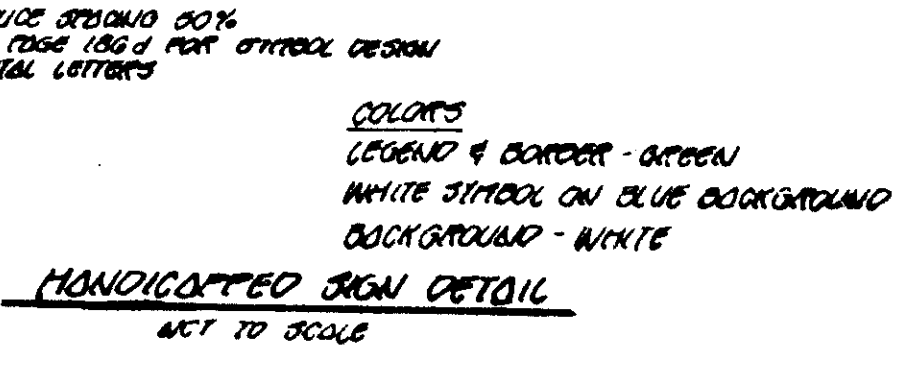 UCE SPACING 50%
PAGE 186d FOR SYMBOL DESIGN
TAL LETTERS
COLORS
LEGEND & BORDER - GREEN
WHITE SYMBOL ON BLUE BACKGROUND
BACKGROUND - WHITE
HANDICAPPED SIGN DETAIL
NOT TO SCALE